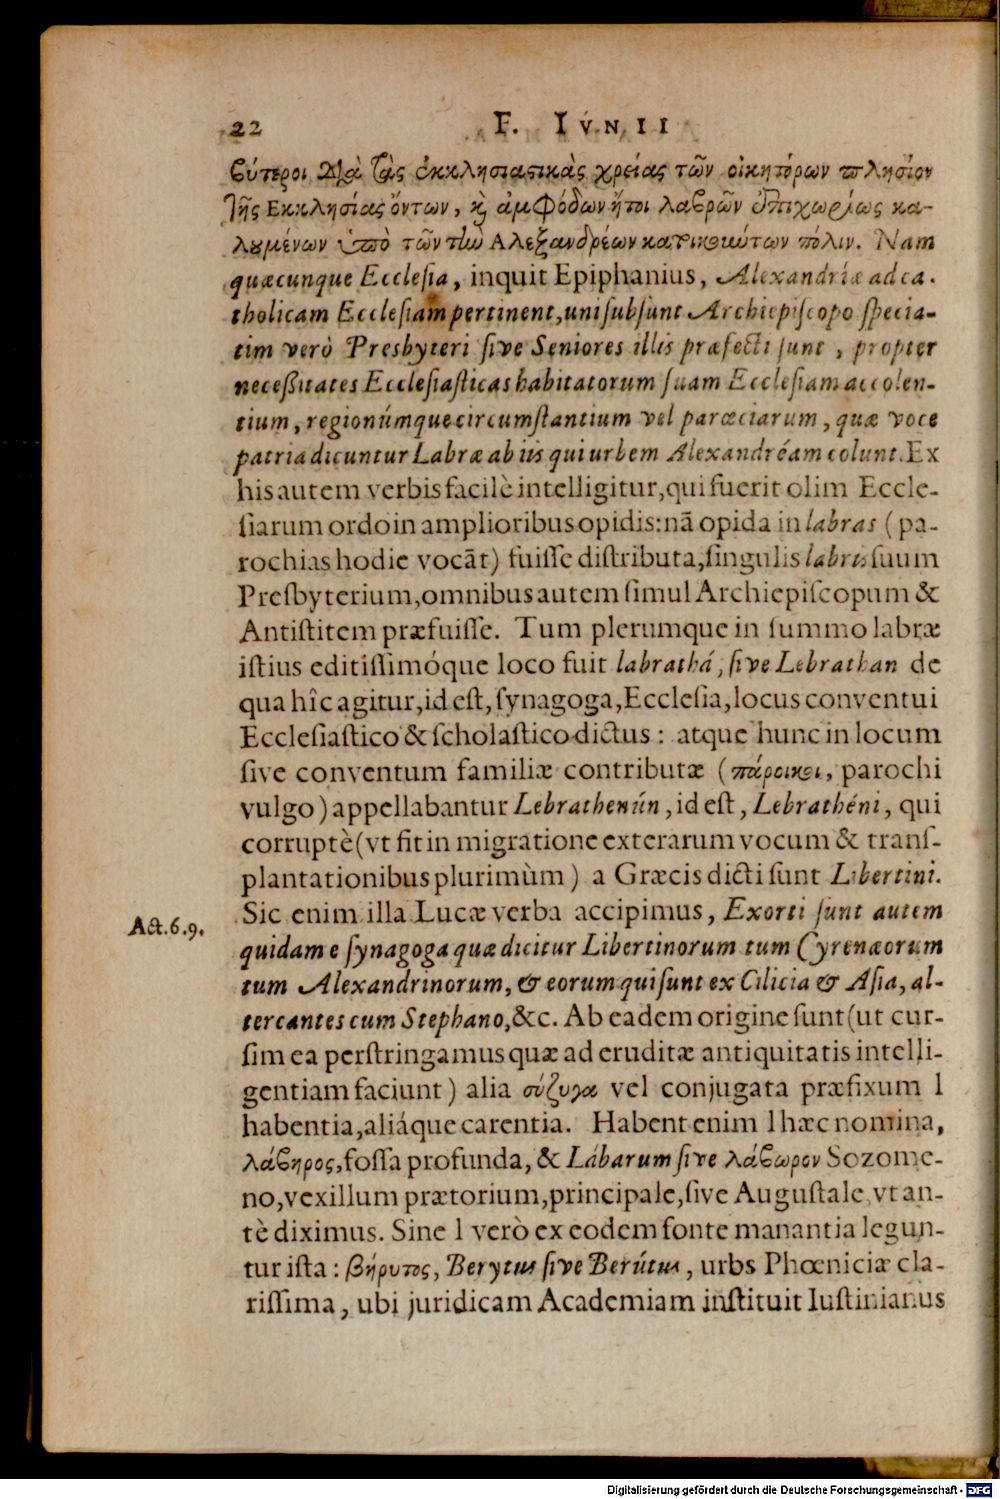 22 F. IVNII
βύτεροι διὰ τὰς ἐκκλησιαστικὰς χρείας τῶν οἰκητόρων πλησίον
τῆς Ἐκκλησίας ὄντων, καὶ ἀμφόδων ἤτοι λαβρῶν ἐπιχωρίως κα-
λουμένων ὑπὸ τῶν τὴν Ἀλεξανδρέων κατοικούντων πόλιν. Nam
quæcunque Ecclesia, inquit Epiphanius, Alexandriæ ad ca-
tholicam Ecclesiam pertinent, uni subsunt Archiepiscopo specia-
tim verò Presbyteri sive Seniores illis præfecti sunt, propter
necessitates Ecclesiasticas habitatorum suam Ecclesiam accolen-
tium, regionúmque circumstantium vel parœciarum, quæ voce
patria dicuntur Labræ ab iis qui urbem Alexandréam colunt. Ex
his autem verbis facilè intelligitur, qui fuerit olim Eccle-
siarum ordo in amplioribus opidis: nã opida in labras (pa-
rochias hodie vocãt) fuisse distributa, singulis labris suum
Presbyterium, omnibus autem simul Archiepiscopum &
Antistitem præfuisse. Tum plerumque in summo labræ
istius editissimóque loco fuit labrathá, sive Lebrathan de
qua hîc agitur, id est, synagoga, Ecclesia, locus conventui
Ecclesiastico & scholastico dictus: atque hunc in locum
sive conventum familiæ contributæ (πάροικοι, parochi
vulgo) appellabantur Lebrathenún, id est, Lebrathéni, qui
corruptè (vt fit in migratione exterarum vocum & trans-
plantationibus plurimùm) a Græcis dicti sunt Libertini.
Sic enim illa Lucæ verba accipimus, Exorti sunt autem
Act. 6. 9.
quidam e synagoga quæ dicitur Libertinorum tum Cyrenæorum
tum Alexandrinorum, & eorum qui sunt ex Cilicia & Asia, al-
tercantes cum Stephano, &c. Ab eadem origine sunt (ut cur-
sim ea perstringamus quæ ad eruditæ antiquitatis intelli-
gentiam faciunt) alia σύζυγα vel conjugata præfixum l
habentia, aliáque carentia. Habent enim l hæc nomina,
λάβηρος, fossa profunda, & Lábarum sive λάβωρον Sozome-
no, vexillum prætorium, principale, sive Augustale vt an-
tè diximus. Sine l verò ex eodem fonte manantia legun-
tur ista: βήρυτος, Berytus sive Berútus, urbs Phœniciæ cla-
rissima, ubi juridicam Academiam instituit Iustinianus
Digitalisierung gefördert durch die Deutsche Forschungsgemeinschaft - DFG